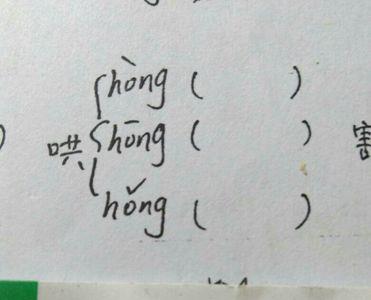 hòng (    )
哄 hōng (    )
hǒng (    )